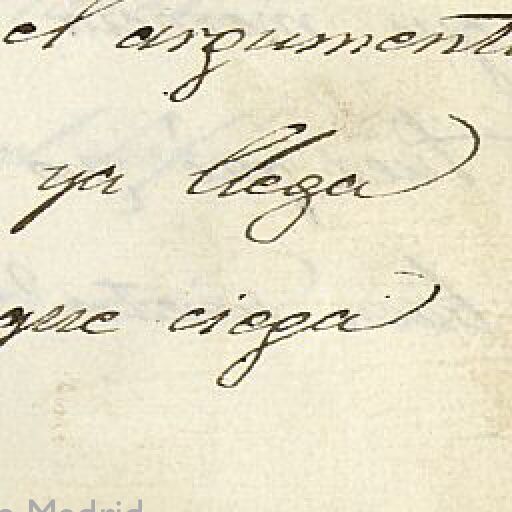 el argument
ya llega
que ciega
Madrid